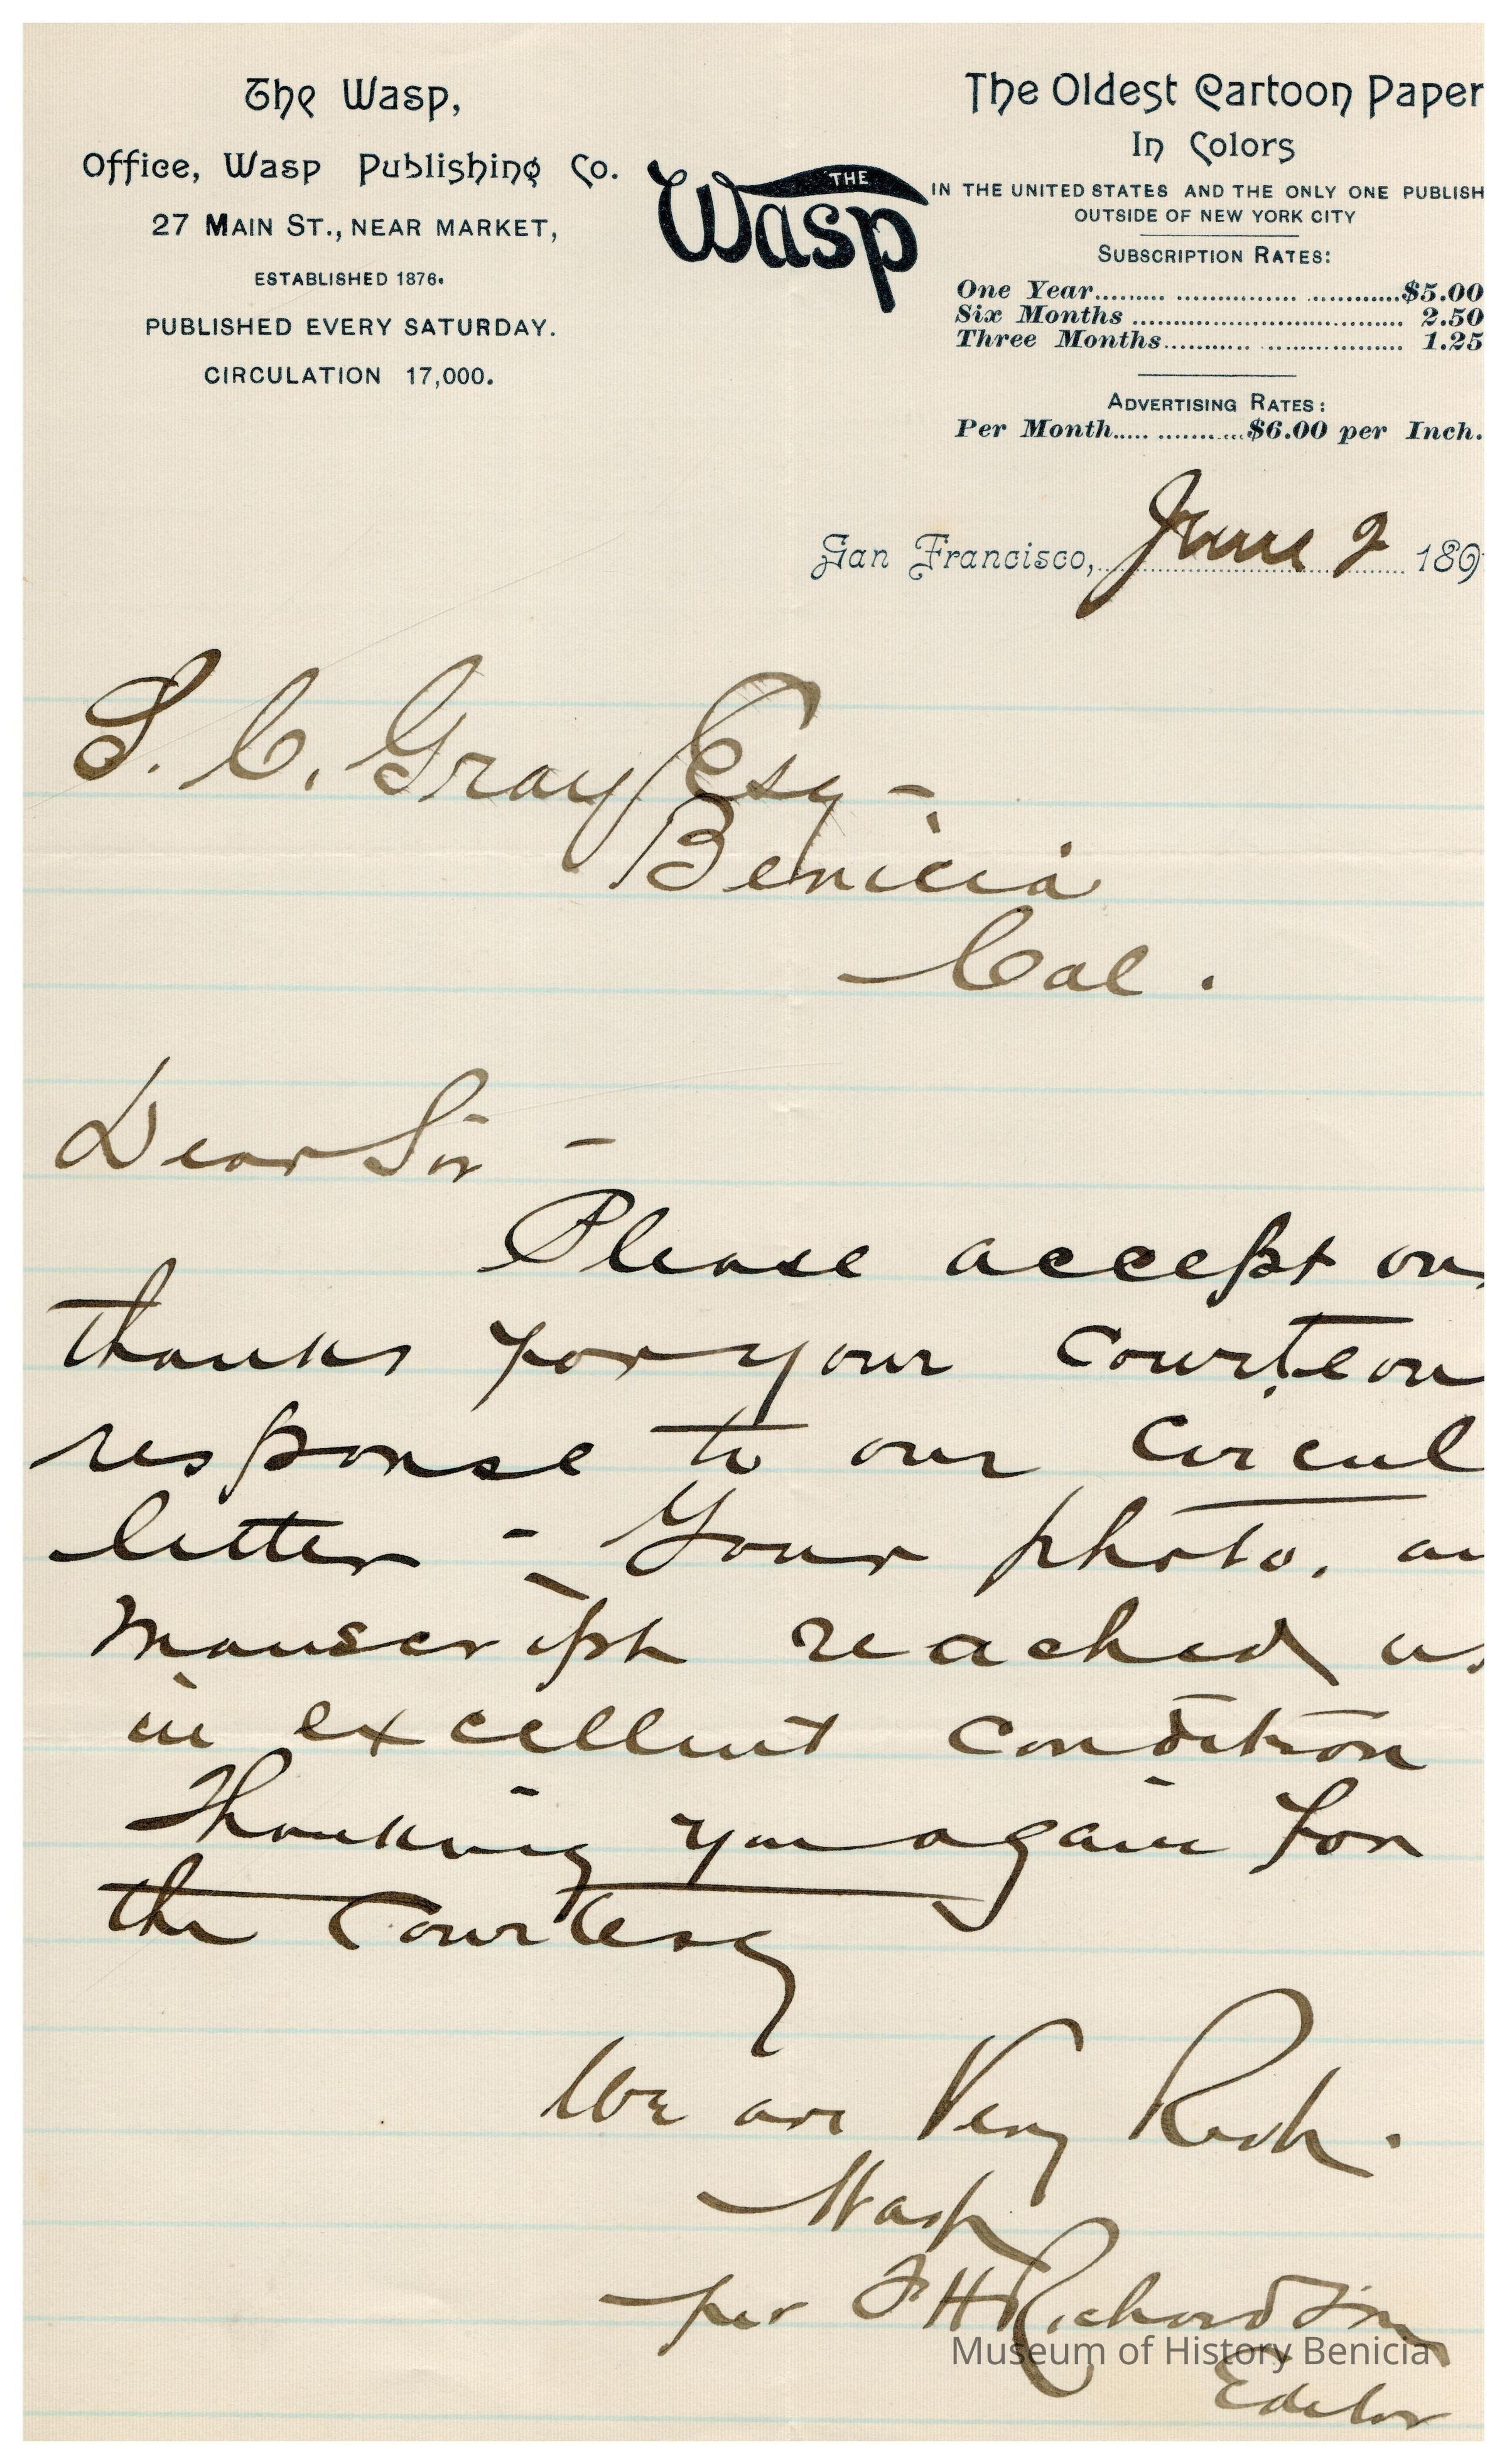 The Wasp,
Office, Wasp Publishing Co.
27 MAIN ST., NEAR MARKET,
ESTABLISHED 1876.
PUBLISHED EVERY SATURDAY.
CIRCULATION 17,000.
THE
Wasp
The Oldest Cartoon Paper
In Colors
IN THE UNITED STATES AND THE ONLY ONE PUBLISH
OUTSIDE OF NEW YORK CITY
SUBSCRIPTION RATES:
One Year.....................................$5.00
Six Months ..................................... 2.50
Three Months.............................. 1.25
ADVERTISING RATES:
Per Month..............$6.00 per Inch.
San Francisco, June 2 189
S. C. Gray Esq -
Benicia
Cal.
Dear Sir -
Please accept our
thanks for your courteou
response to our circul
letter - Your photo. an
manuscript reached us
in excellent condition
Thanking you again for
the courtesy
We are Very Resp.
Wasp
per F H Richardson
Editor
Museum of History Benicia